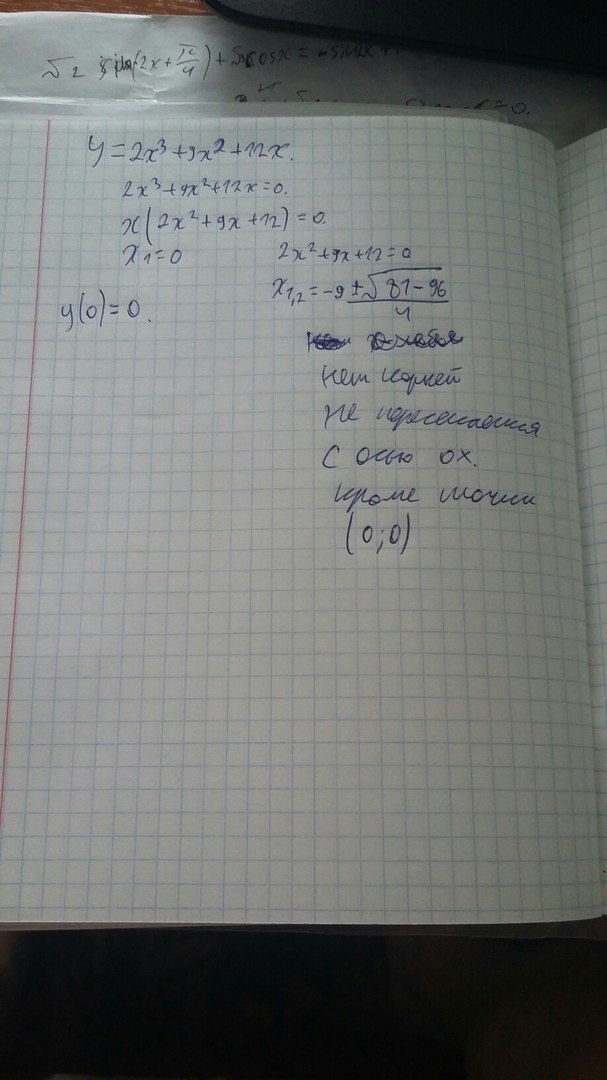 √2 sin(2x + π/4) + √2cosx =
= 0.
y = 2x³ + 9x² + 12x.
2x³ + 9x² + 12x = 0.
x(2x² + 9x + 12) = 0
x₁ = 0 2x² + 9x + 12 = 0
x₁,₂ = -9 ± √81 - 96 / 4
y(0) = 0.
нет корней
не пересекается
с осью ох.
кроме точки
(0; 0)